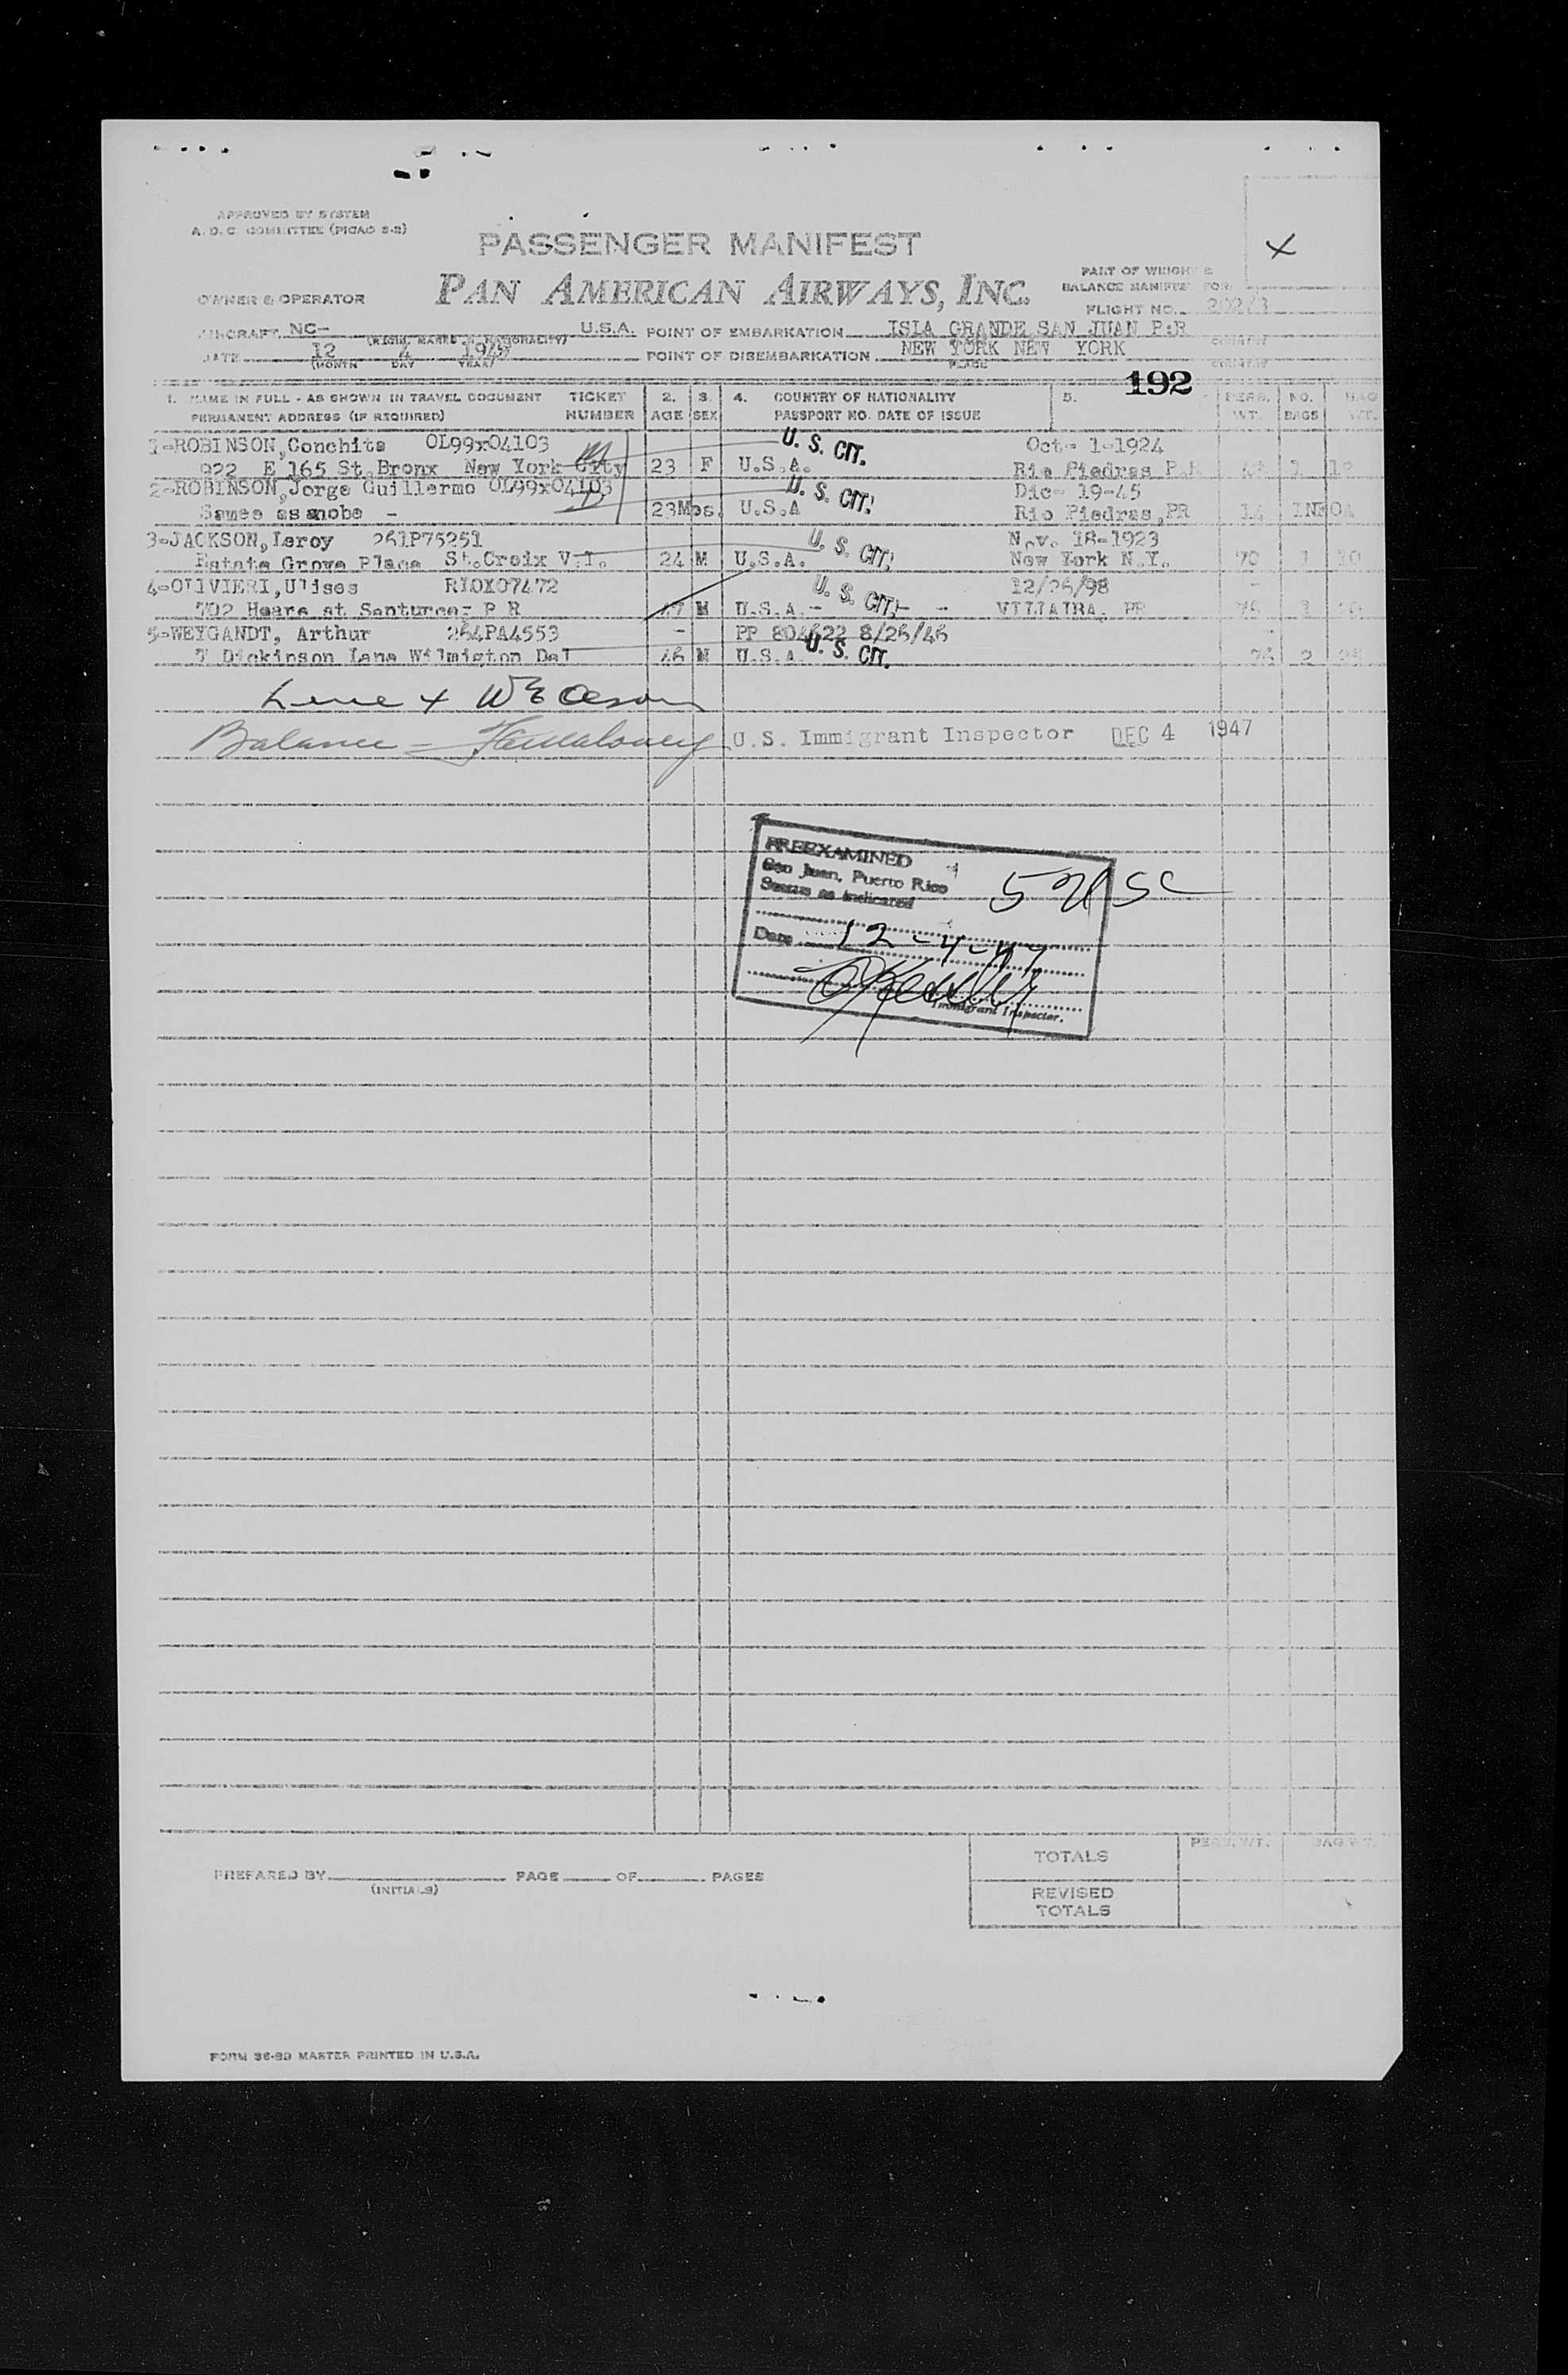 APPROVED BY SYSTEM
A. D. C. COMMITTEE (PICAO 2-2)
PASSENGER MANIFEST
PAN AMERICAN AIRWAYS, INC.
PART OF WEIGHT &
BALANCE MANIFEST FOR
OWNER & OPERATOR
FLIGHT NO. 202/3
AIRCRAFT NC- U.S.A. POINT OF EMBARKATION ISLA GRANDE SAN JUAN P.R
(REGIS. MARKS & NATIONALITY) COUNTRY
DATE 12 4 1947 POINT OF DISEMBARKATION NEW YORK NEW YORK
(MONTH DAY YEAR) PLACE COUNTRY
192
1. NAME IN FULL - AS SHOWN IN TRAVEL DOCUMENT TICKET 2. 3. 4. COUNTRY OF NATIONALITY 5. PERS. NO. BAG
PERMANENT ADDRESS (IF REQUIRED) NUMBER AGE SEX PASSPORT NO. DATE OF ISSUE WT. BAGS WT.
1-ROBINSON,Conchita OL99x04103 U. S. CIT. Oct- 1-1924
922 E 165 St.Bronx New York City 23 F U.S.A. Rio Piedras P.R 1
2-ROBINSON,Jorge Guillermo OL99x04103 U. S. CIT. Dic- 19-45
Samee as anobe - 23Mos. U.S.A Rio Piedras,PR 14
3-JACKSON,Leroy 261P75251 U. S. CIT. Nov. 18-1923
Estate Grove Place St.Croix V.I. 24 M U.S.A. New York N.Y. 70 1 10
4-OLIVIERI,Ulises RIOX07472 U. S. CIT. 12/26/98
702 Hoare st Santurce- P R 47 M U.S.A.- - - VILLALBA, PR 75 1
5-WEYGANDT, Arthur 264PA4553 - PP 804622 8/26/46
T Dickinson Lane Wilmigton Del 46 M U.S.A. U. S. CIT. 76 2
Balance = U.S. Immigrant Inspector DEC 4 1947
PREEXAMINED
San Juan, Puerto Rico
Status as indicated
5 USC
Date 12-4-47
Immigrant Inspector.
PERS. WT. BAG WT.
TOTALS
PREPARED BY PAGE OF PAGES
(INITIALS)
REVISED
TOTALS
FORM 36-2D MASTER PRINTED IN U.S.A.